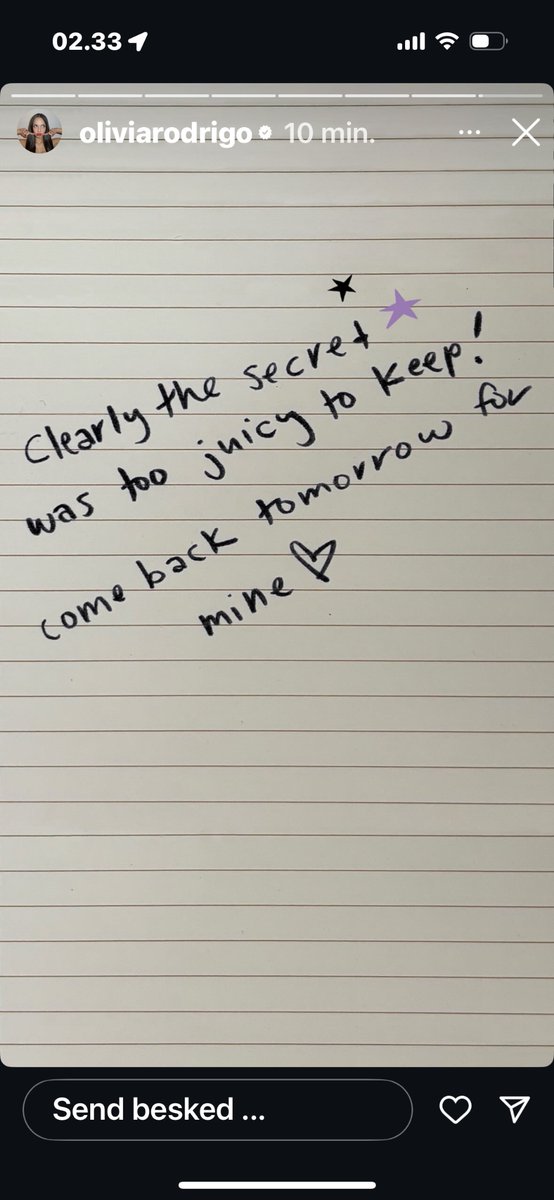 02.33
oliviarodrigo 10 min.
Clearly the secret
was too juicy to keep!
come back tomorrow for
mine
Send besked ...